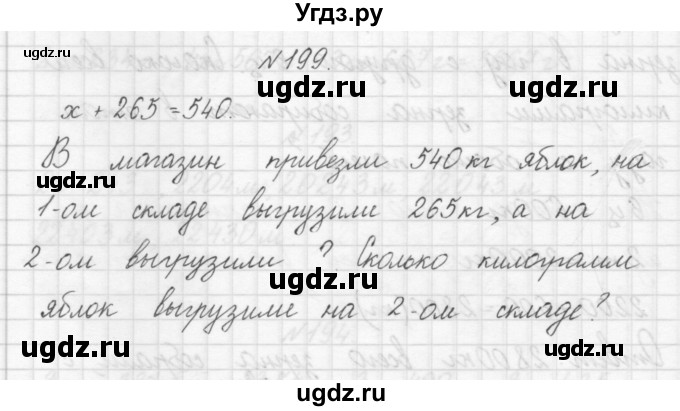 Угдз.ру
ugdz.ru ugdz.ru
№199.
ugdz.ru ugdz.ru
x + 265 = 540.
В магазин привезли 540кг яблок, на
ugdz.ru
1-ом складе выгрузили 265кг, а на
2-ом выгрузили ? Сколько килограмм
ugdz.ru
яблок выгрузили на 2-ом складе?
ugdz.ru ugdz.ru
ugdz.ru